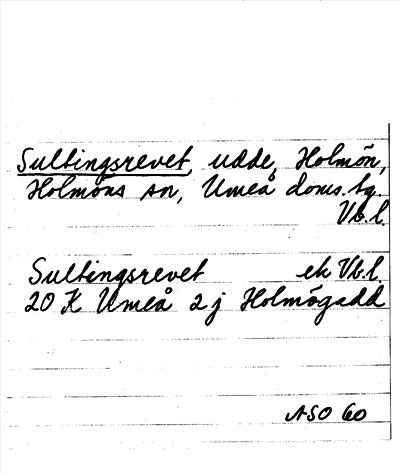 Sultingsrevet, udde, Holmön,
Holmöns sn, Umeå doms.tg.
Vb.l.
Sultingsrevet ek Vb.l
20 K Umeå 2 j Holmögadd
ASO 60